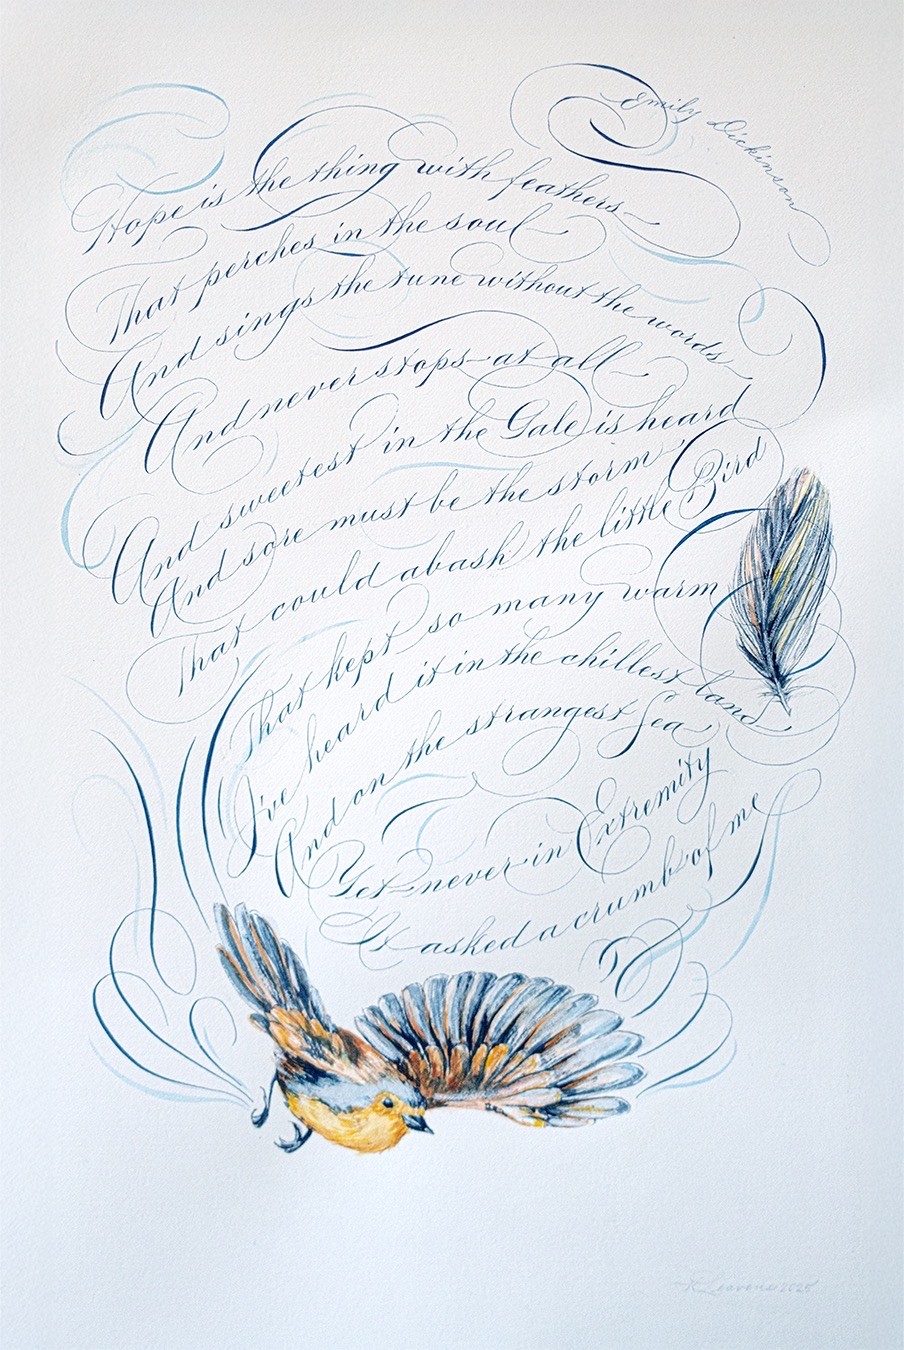 Emily Dickinson
Hope is the thing with feathers–
That perches in the soul–
And sings the tune without the words–
And never stops–at all–
And sweetest in the Gale is heard
And sore must be the storm
That could abash the little Bird
That kept so many warm
I've heard it in the chillest land–
And on the strangest Sea
Yet–never–in Extremity
It asked a crumb–of me
2025